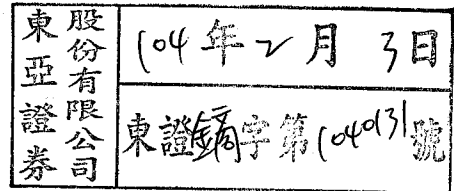 東亞證券
股份有限公司
104年2月3日
東證鏑字第1040131號